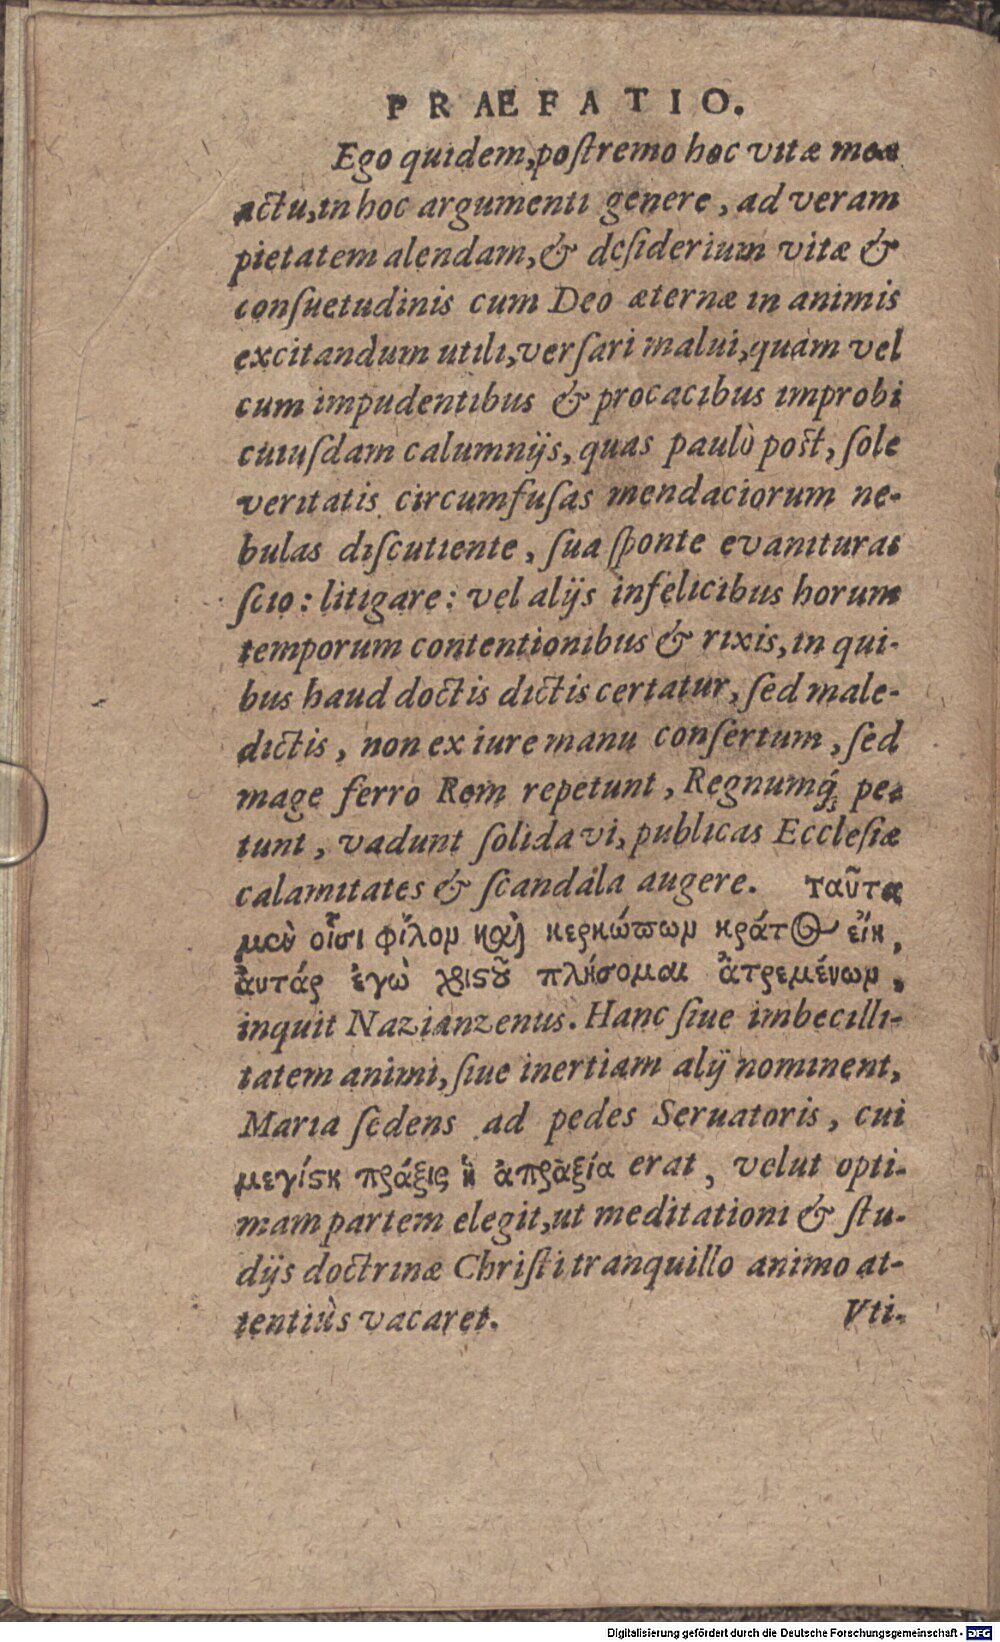 PRÆFATIO.
Ego quidem, postremo hoc vitæ meæ
actu, in hoc argumenti genere, ad veram
pietatem alendam, & desiderium vitæ &
consuetudinis cum Deo æternæ in animis
excitandum utili, versari malui, quàm vel
cum impudentibus & procacibus improbi
cuiusdam calumnijs, quas paulò pòst, sole
veritatis circumfusas mendaciorum ne-
bulas discutiente, sua sponte evanituras
scio: litigare: vel alijs infelicibus horum
temporum contentionibus & rixis, in qui-
bus haud doctis dictis certatur, sed male-
dictis, non ex iure manu consertum, sed
mage ferro Rem repetunt, Regnumq́; pe-
tunt, vadunt solida vi, publicas Ecclesiæ
calamitates & scandala augere. ταῦτα
μὲν οἷσι φίλον καὶ κερκώπων κράτος εἴη,
ἀυτάρ ἐγὼ χριστοῦ πλήσομαι ἀτρεμένων,
inquit Nazianzenus. Hanc siue imbecilli-
tatem animi, siue inertiam alij nominent,
Maria sedens ad pedes Seruatoris, cui
μεγίστη πράξις ἡ ἀπραξία erat, velut opti-
mam partem elegit, ut meditationi & stu-
dijs doctrinæ Christi tranquillo animo at-
tentiùs vacaret.
Vti-
Digitalisierung gefördert durch die Deutsche Forschungsgemeinschaft - DFG